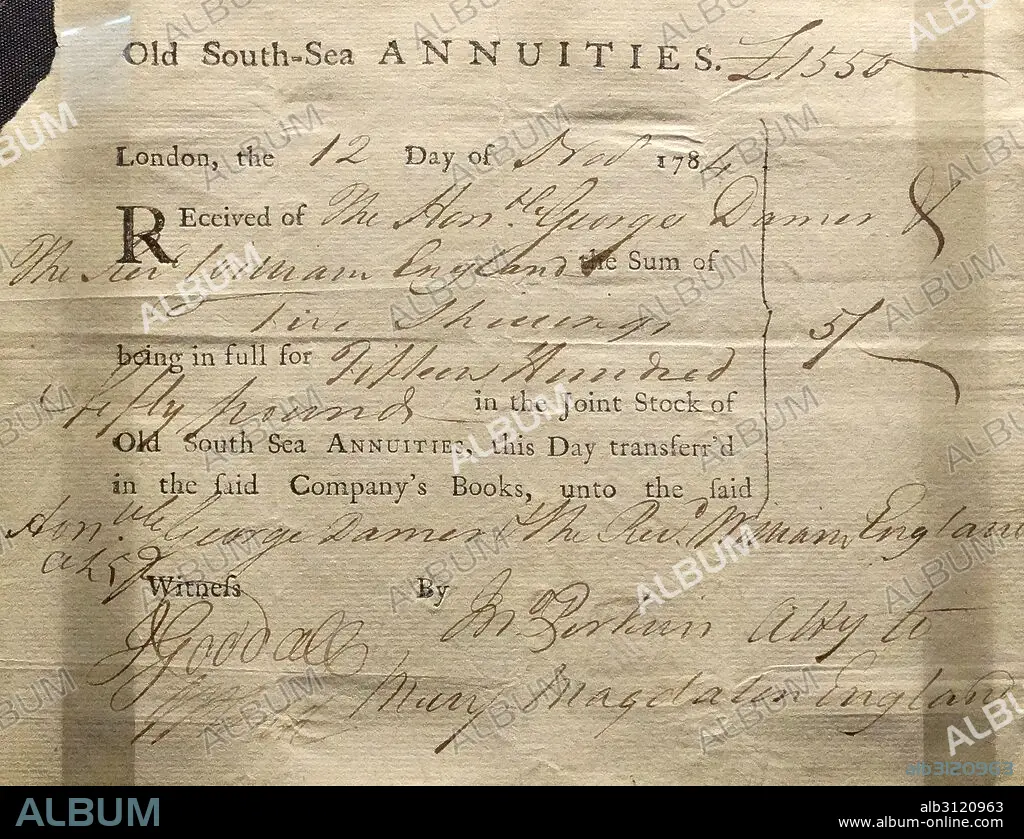 Old South-Sea ANNUITIES. £1550
London, the 12 Day of Nov 1784
REceived of The Honble George Damer &
The Revd William England the Sum of
Five Shillings 5/
being in full for Fifteen Hundred
& fifty pounds in the Joint Stock of
Old South Sea ANNUITIES, this Day transferr'd
in the ſaid Company's Books, unto the ſaid
Honble George Damer & The Revd William England
Witneſs By Jno Perkin Atty to
J Goodall
Mary Magdalen England
ALBUM
ab3120963
ALBUM
alb3120963
www.album-online.com